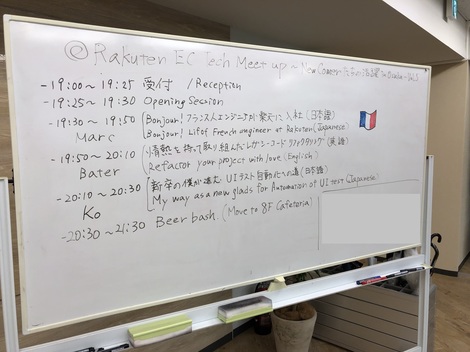 @Rakuten EC Tech Meet up ~ New Comerたちの活躍 in Osaka ~ Vol.1
- 19:00 ~ 19:25 受付 / Reception
- 19:25 ~ 19:30 Opening Session
- 19:30 ~ 19:50 Bonjour! フランスエンジニアが楽天に入社 (日本語)
Marc Bonjour! Life of French engineer at Rakuten (Japanese)
- 19:50 ~ 20:10 情熱を持って取り組んだレガシーコードリファクタリング (英語)
Bater Refactor your project with love (English)
- 20:10 ~ 20:30 新卒の僕が進む UIテスト自動化への道 (日本語)
Ko My way as a new glads for Automation of UI test (Japanese)
- 20:30 ~ 21:30 Beer bash (Move to 8F Cafeteria)